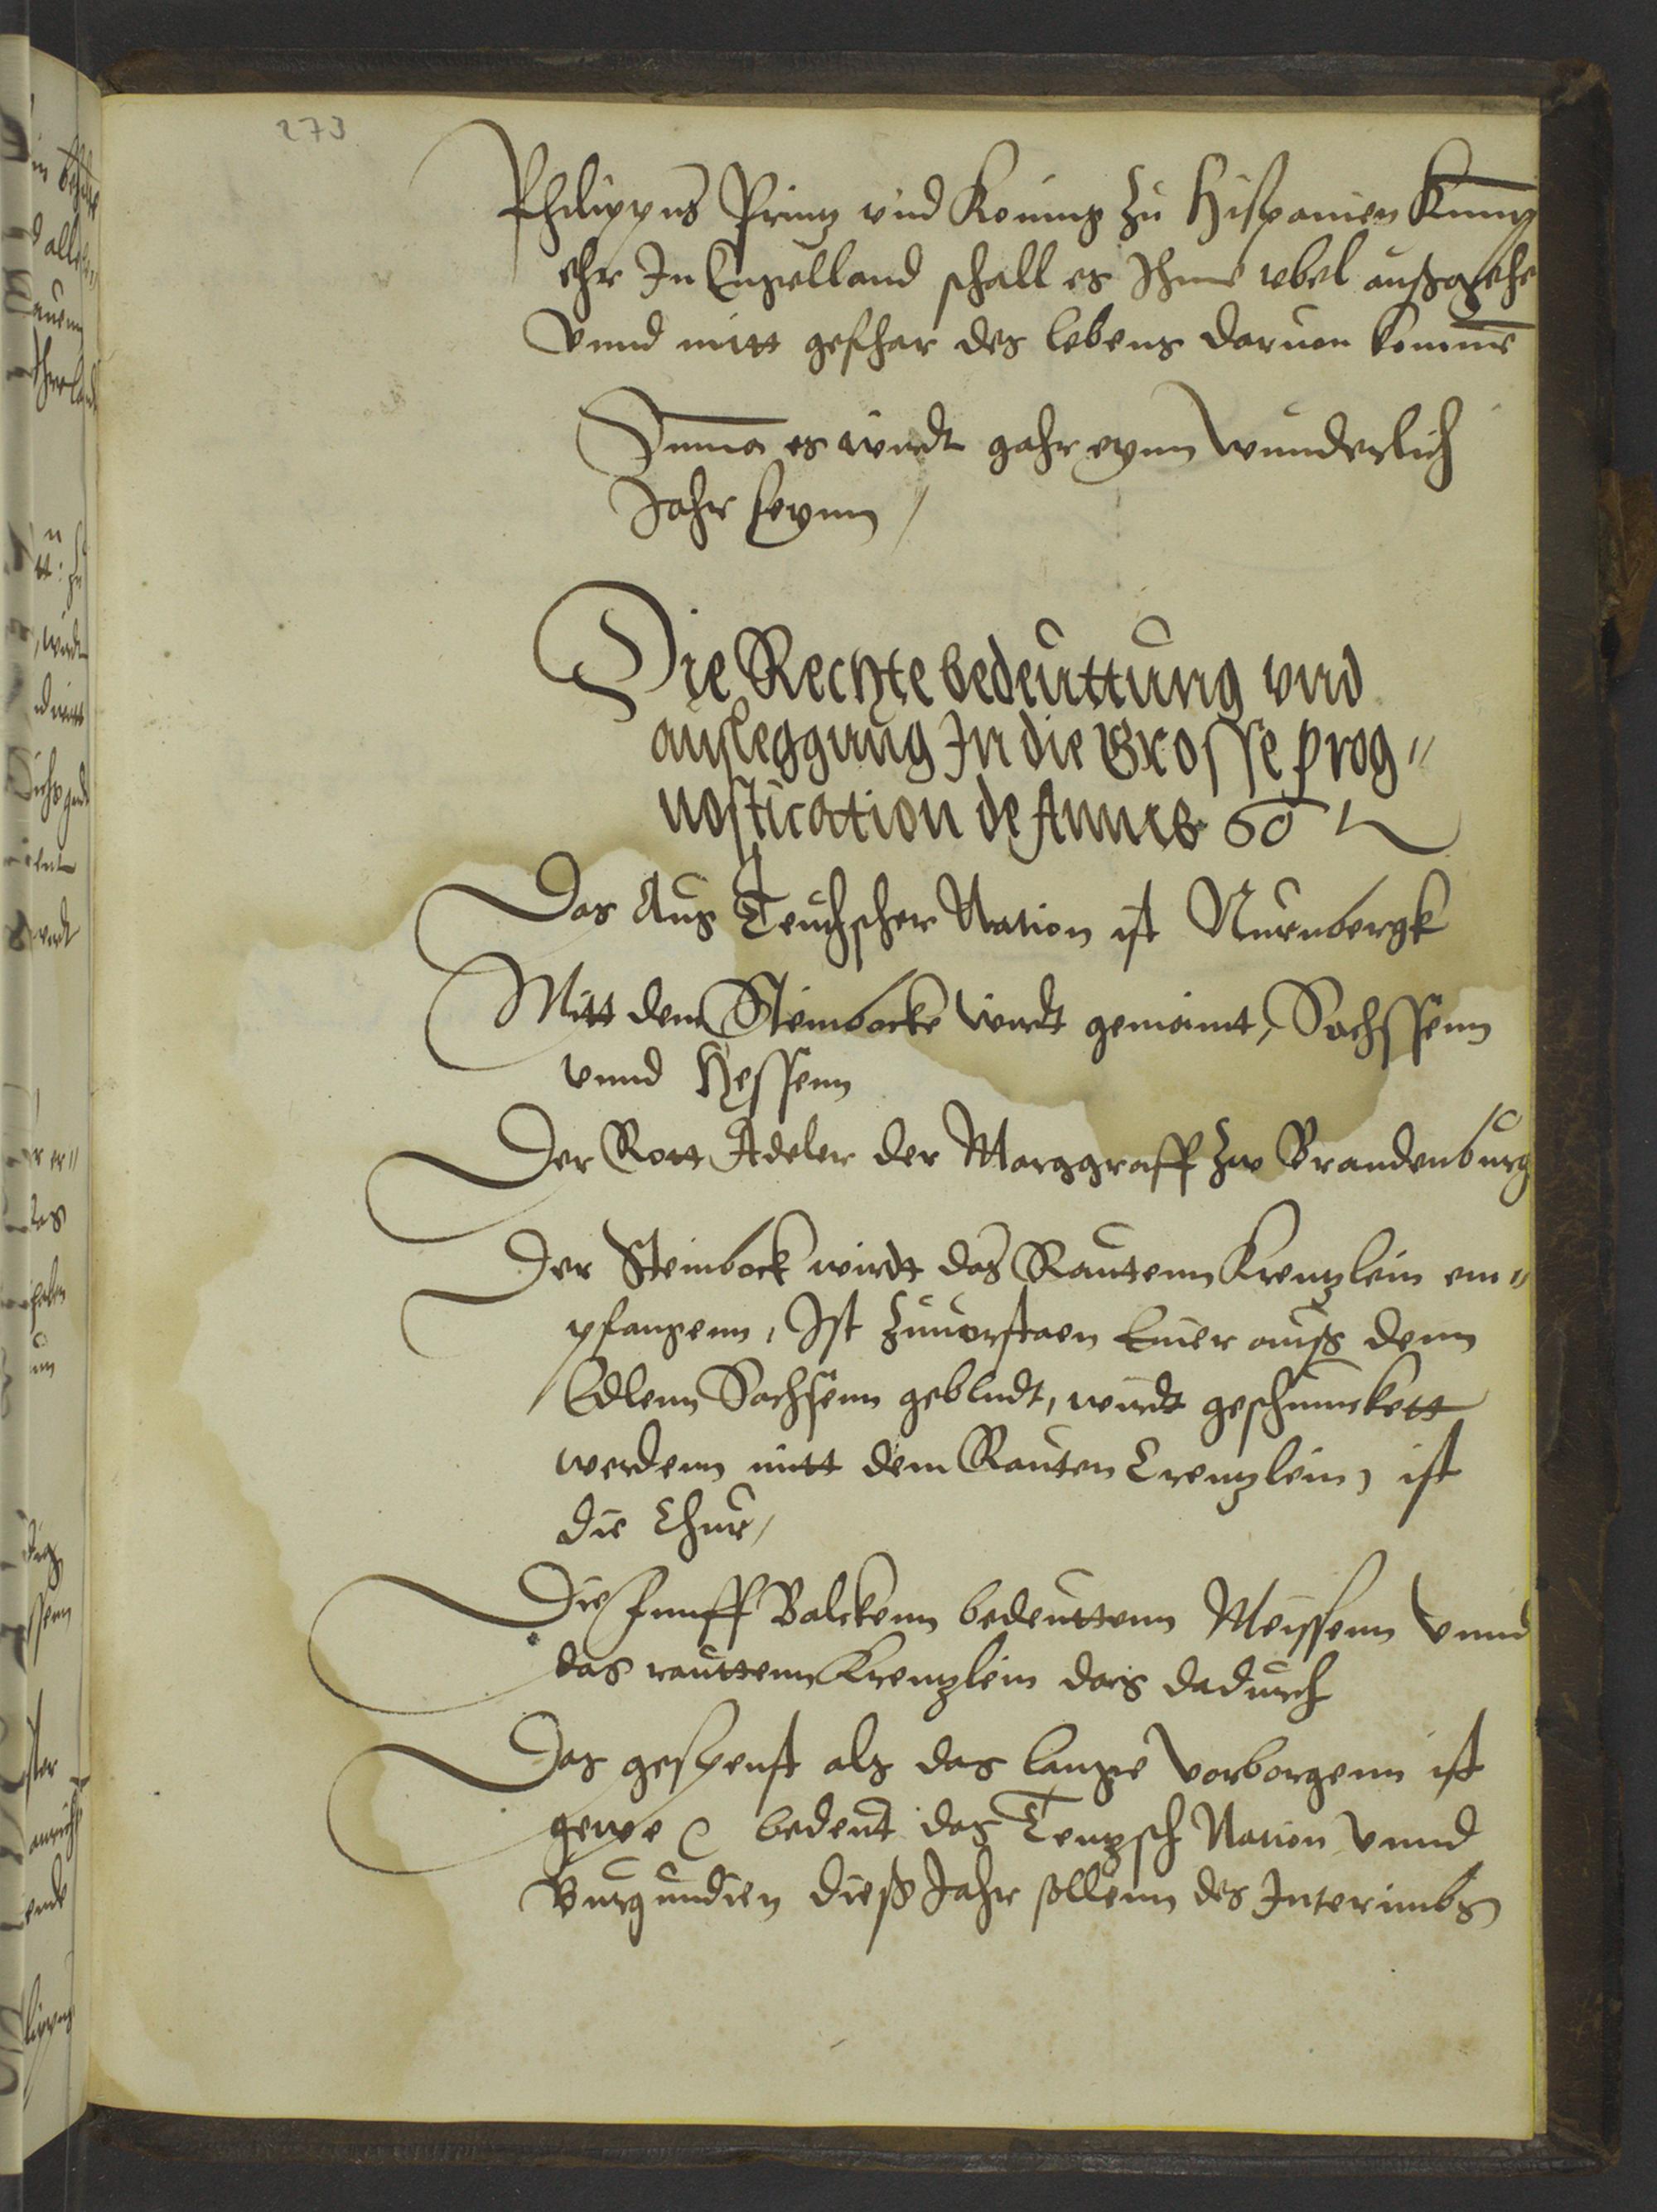 273
Philippus Prinz vnd Koning zu Hispanien Kumpt
ehr In Engelland schall es Ihme vbel außgehe
Vnnd mitt gefhar des lebens daruon komme
Summa es wirdt gahr eynn wunderlich
Jahr seynn /
Die Rechte bedeuttung vnd
ausleggung In die Grosse prog"
nostication de Annis 60
Das Aug Teuchscher Nation ist Nurnbergk
Mitt dem Steinbocke wirdt gemeint, Sachssenn
vnnd Hessenn
Der Rott Adeler der Marggraff zw Brandenburg
Der Steinbock wirdt das Rautenn Krenzlein em"
pfangenn, Ist zuuorstaen Einer auß denn
Edlenn Sachsenn gebludt, wirdt geschmuckett
werdenn mitt dem Rauten Crenzlein, ist
die Chur,
Die funff Balckenn bedeuttenn Meissenn Vnnd
das rauttenn Krenzlein dars dadurch
Das gespenst als das lange vorborgenn ist
bedeut das Teuzsch Nation vnnd
Burgundien dieß Jahr sollenn des Interimbs